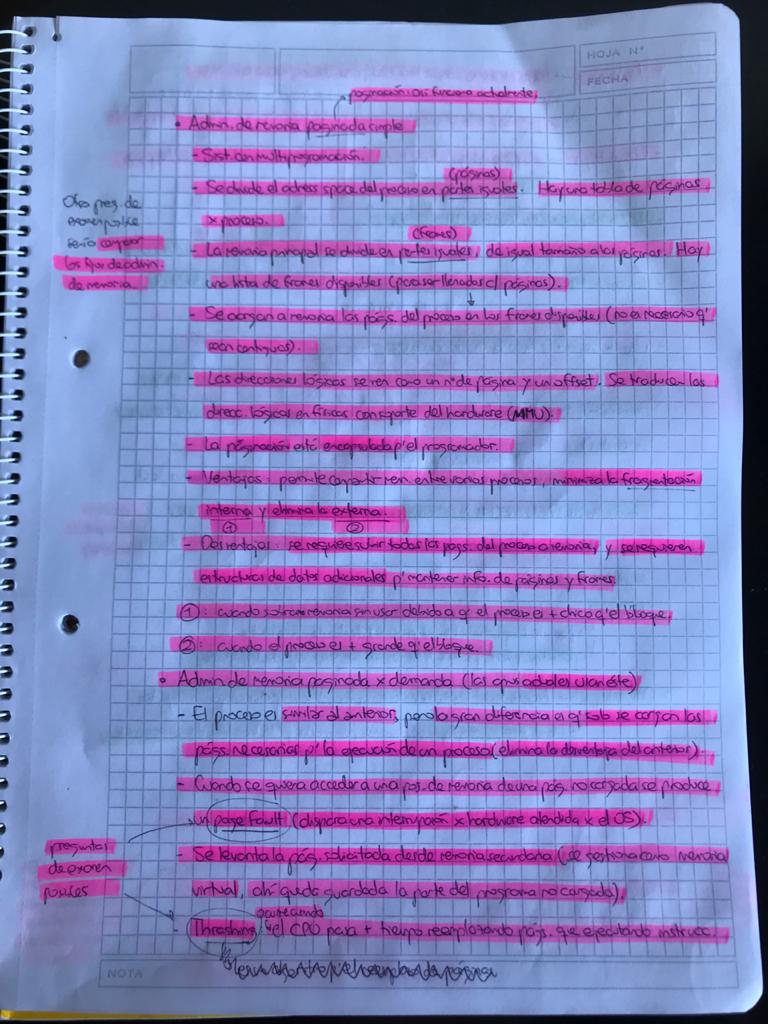 HOJA N°
FECHA
paginación: así funciona actualmente
• Admin. de memoria paginada simple
- Sist. con multiprogramación.
(páginas)
- Se divide el adress space del proceso en partes iguales. Hay una tabla de páginas
x proceso.
(frames)
- La memoria principal se divide en partes iguales, de igual tamaño a las páginas. Hay
una lista de frames disponibles (para ser llenados c/ páginas).
- Se cargan a memoria las págs. del proceso en los frames disponibles (no es necesario q'
sean contiguos).
- Las direcciones lógicas se ven como un n° de página y un offset. Se traducen las
direcc. lógicas en físicas con soporte del hardware (MMU).
- La paginación está encapsulada p' el programador.
- Ventajas: permite compartir mem. entre varios procesos, minimiza la fragmentación
interna y elimina la externa.
① ②
- Desventajas: se requiere subir todas las pags. del proceso a memoria, y se requieren
estructuras de datos adicionales p' mantener info. de páginas y frames
①: cuando sobra memoria sin usar debido a q' el proceso es + chico q' el bloque.
②: cuando el proceso es + grande q' el bloque.
• Admin de memoria paginada x demanda (las cpus actuales usan éste)
- El proceso es similar al anterior, pero la gran diferencia es q' solo se cargan las
págs. necesarias p' la ejecución de un proceso (elimina la desventaja del anterior).
- Cuando se quiera acceder a una pos. de memoria de una pág. no cargada se produce
un page fault (dispara una interrupción x hardware atendida x el OS).
- Se levanta la pág. solicitada desde memoria secundaria (se gestiona como memoria
virtual, ahí queda guardada la parte del programa no cargada).
ocurre cuando
- Thrashing: el CPU pasa + tiempo reemplazando págs. que ejecutando instrucc.
Otra preg. de
examen posible
sería comparar
los tipos de admin.
de memoria.
preguntas
de examen
posibles
NOTA